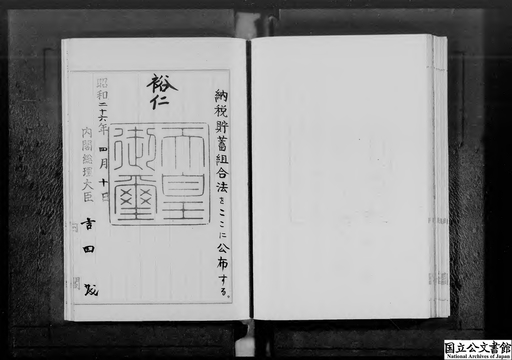 納税貯蓄組合法をここに公布する。
裕仁
天皇
御璽
昭和二十六年四月十日
内閣総理大臣 吉田茂
国立公文書館
National Archives of Japan